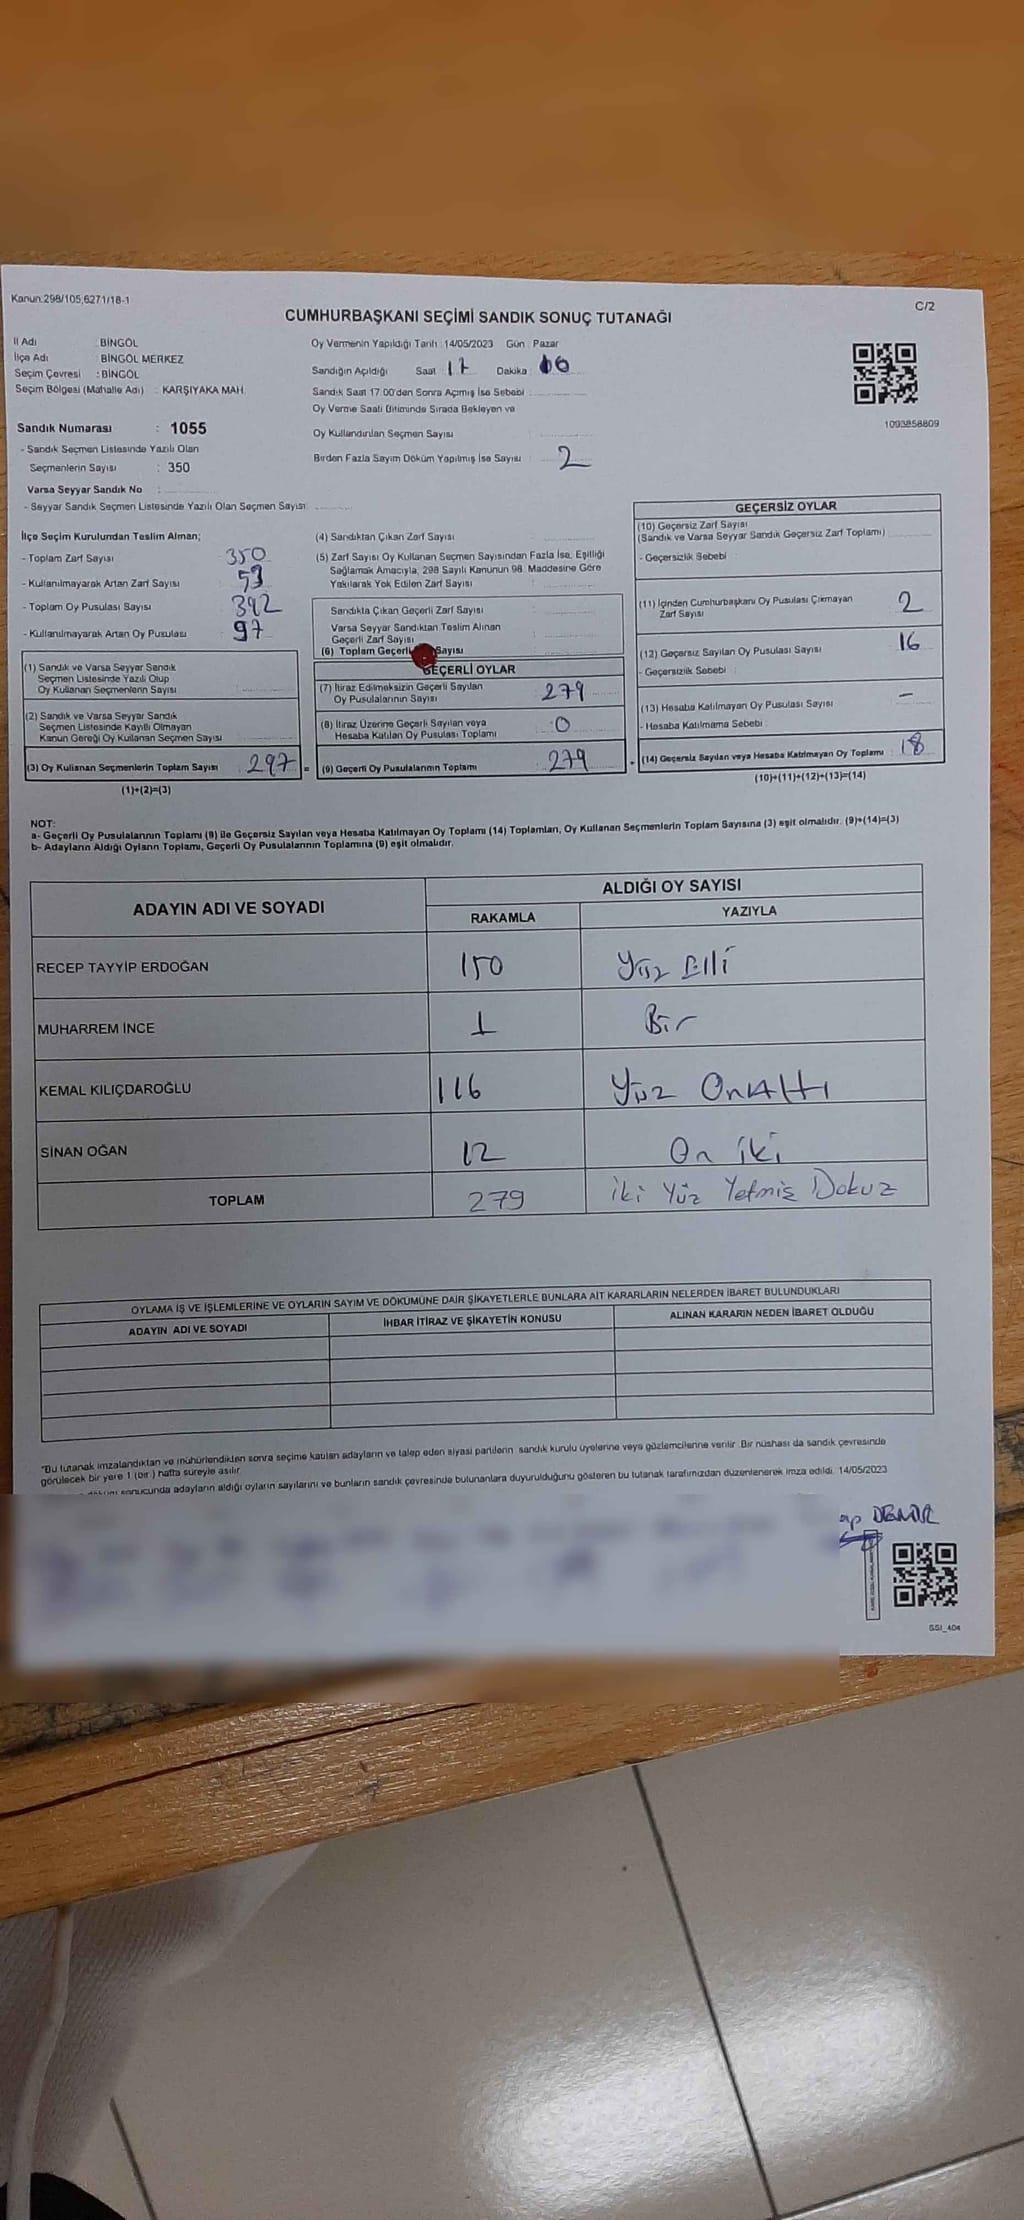 Kanun:298/105,6271/18-1
C/2
CUMHURBAŞKANI SEÇİMİ SANDIK SONUÇ TUTANAĞI
İl Adı : BİNGÖL
İlçe Adı : BİNGÖL MERKEZ
Seçim Çevresi : BİNGÖL
Seçim Bölgesi (Mahalle Adı) : KARŞIYAKA MAH.
Sandık Numarası : 1055
- Sandık Seçmen Listesinde Yazılı Olan
Seçmenlerin Sayısı : 350
Varsa Seyyar Sandık No :
- Seyyar Sandık Seçmen Listesinde Yazılı Olan Seçmen Sayısı:
Oy Vermenin Yapıldığı Tarih : 14/05/2023 Gün : Pazar
Sandığın Açıldığı Saat : 17 Dakika :
Sandık Saat 17:00'den Sonra Açmış İse Sebebi :
Oy Verme Saati Bitiminde Sırada Bekleyen ve
Oy Kullandırılan Seçmen Sayısı
Birden Fazla Sayım Döküm Yapılmış İse Sayısı : 2
1093858809
İlçe Seçim Kurulundan Teslim Alınan;
- Toplam Zarf Sayısı 350
- Kullanılmayarak Artan Zarf Sayısı 53
- Toplam Oy Pusulası Sayısı 392
- Kullanılmayarak Artan Oy Pusulası 97
(1) Sandık ve Varsa Seyyar Sandık
Seçmen Listesinde Yazılı Olup
Oy Kullanan Seçmenlerin Sayısı
(2) Sandık ve Varsa Seyyar Sandık
Seçmen Listesinde Kayıtlı Olmayan
Kanun Gereği Oy Kullanan Seçmen Sayısı
(3) Oy Kullanan Seçmenlerin Toplam Sayısı : 297 =
(1)+(2)=(3)
(4) Sandıktan Çıkan Zarf Sayısı
(5) Zarf Sayısı Oy Kullanan Seçmen Sayısından Fazla İse, Eşitliği
Sağlamak Amacıyla, 298 Sayılı Kanunun 98. Maddesine Göre
Yakılarak Yok Edilen Zarf Sayısı
Sandıkta Çıkan Geçerli Zarf Sayısı
Varsa Seyyar Sandıktan Teslim Alınan
Geçerli Zarf Sayısı
(6) Toplam Geçerli Sayısı
GEÇERLİ OYLAR
(7) İtiraz Edilmeksizin Geçerli Sayılan
Oy Pusulalarının Sayısı : 279
(8) İtiraz Üzerine Geçerli Sayılan veya
Hesaba Katılan Oy Pusulası Toplamı : 0
(9) Geçerli Oy Pusulalarının Toplamı : 279
GEÇERSİZ OYLAR
(10) Geçersiz Zarf Sayısı
(Sandık ve Varsa Seyyar Sandık Geçersiz Zarf Toplamı)
- Geçersizlik Sebebi :
(11) İçinden Cumhurbaşkanı Oy Pusulası Çıkmayan
Zarf Sayısı : 2
(12) Geçersiz Sayılan Oy Pusulası Sayısı : 16
- Geçersizlik Sebebi :
(13) Hesaba Katılmayan Oy Pusulası Sayısı : -
- Hesaba Katılmama Sebebi :
+ (14) Geçersiz Sayılan veya Hesaba Katılmayan Oy Toplamı : 18
(10)+(11)+(12)+(13)=(14)
NOT:
a- Geçerli Oy Pusulalarının Toplamı (9) ile Geçersiz Sayılan veya Hesaba Katılmayan Oy Toplamı (14) Toplamları, Oy Kullanan Seçmenlerin Toplam Sayısına (3) eşit olmalıdır. (9)+(14)=(3)
b- Adayların Aldığı Oyların Toplamı, Geçerli Oy Pusulalarının Toplamına (9) eşit olmalıdır.
ADAYIN ADI VE SOYADI
ALDIĞI OY SAYISI
RAKAMLA YAZIYLA
RECEP TAYYİP ERDOĞAN 150 Yüz Elli
MUHARREM İNCE 1 Bir
KEMAL KILIÇDAROĞLU 116 Yüz OnAltı
SİNAN OĞAN 12 On iki
TOPLAM 279 iki Yüz Yetmiş Dokuz
OYLAMA İŞ VE İŞLEMLERİNE VE OYLARIN SAYIM VE DÖKÜMÜNE DAİR ŞİKAYETLERLE BUNLARA AİT KARARLARIN NELERDEN İBARET BULUNDUKLARI
ADAYIN ADI VE SOYADI
İHBAR İTİRAZ VE ŞİKAYETİN KONUSU
ALINAN KARARIN NEDEN İBARET OLDUĞU
"Bu tutanak imzalandıktan ve mühürlendikten sonra seçime katılan adayların ve talep eden siyasi partilerin sandık kurulu üyelerine veya gözlemcilerine verilir. Bir nüshası da sandık çevresinde
görülecek bir yere 1 (bir) hafta süreyle asılır.
sonucunda adayların aldığı oyların sayılarını ve bunların sandık çevresinde bulunanlara duyurulduğunu gösteren bu tutanak tarafımızdan düzenlenerek imza edildi. 14/05/2023
DEMİR
SSI_404